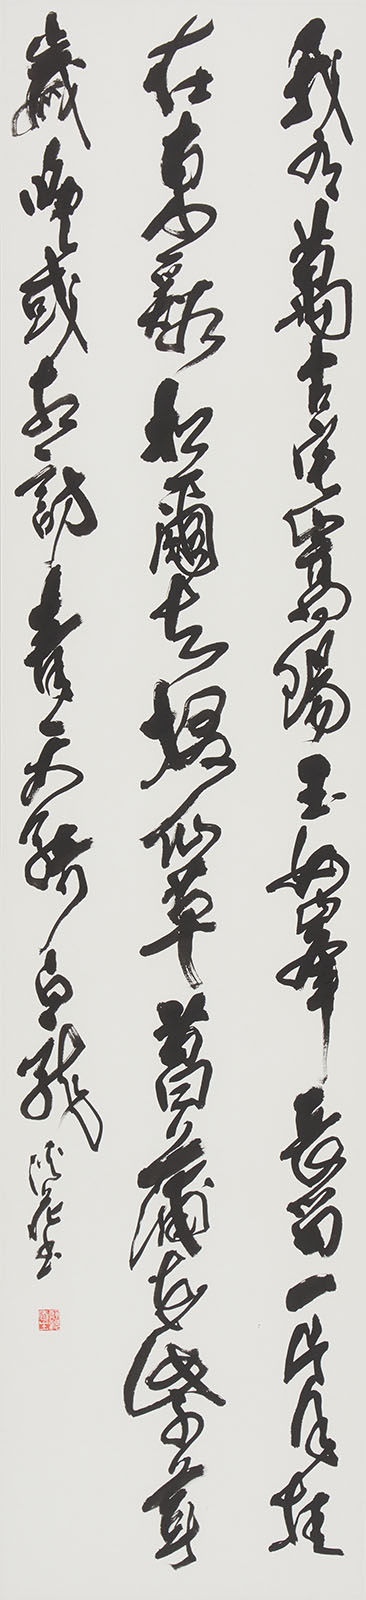 我有萬古宅嵩陽玉女峯長留一片月挂
在東谿松爾去掇仙草菖蒲花紫茸
歲晚或相訪青天騎白龍